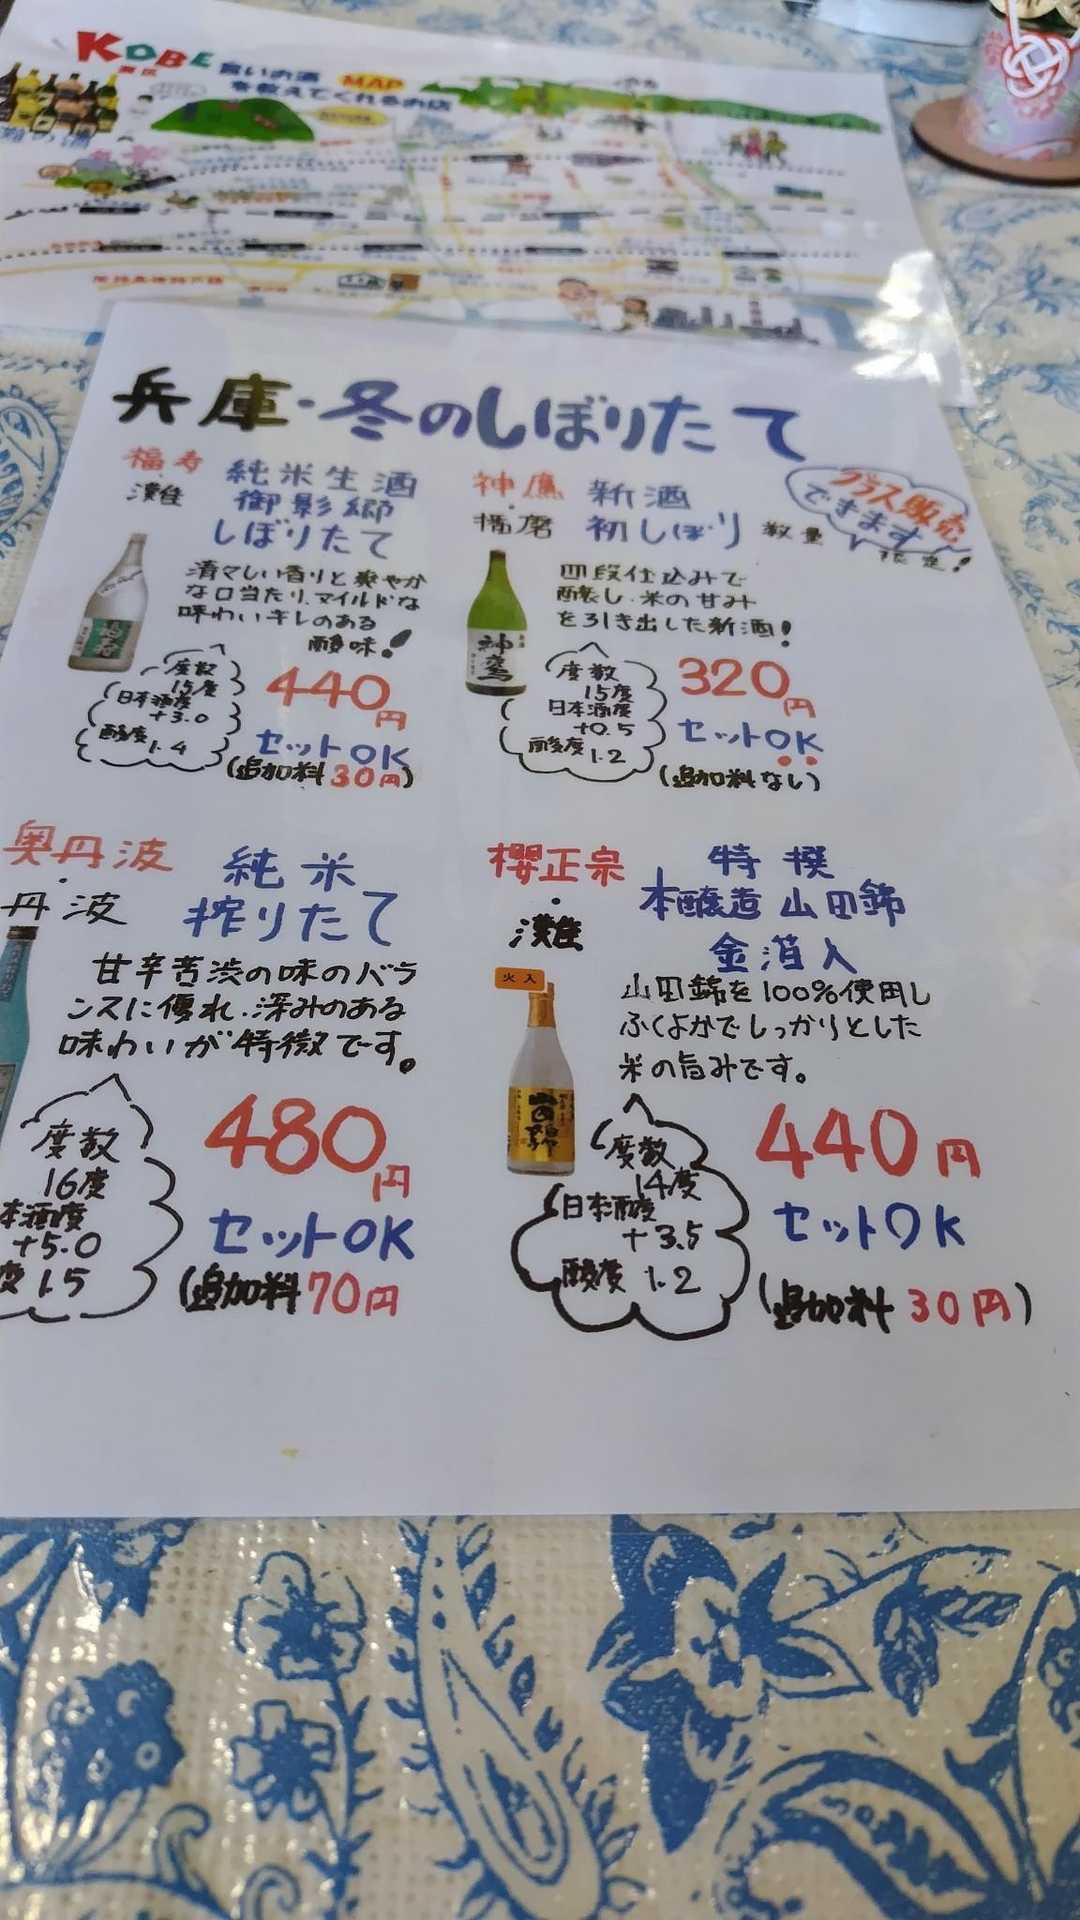 KOBE
旨いお酒
を教えてくれるお店
MAP
灘の酒
兵庫・冬のしぼりたて
グラス販売
できます
数量
限定!
福寿
・
灘
純米生酒
御影郷
しぼりたて
清々しい香りと爽やか
な口当たり、マイルドな
味わいキレのある
酸味!
度数
15度
日本酒度
+3.0
酸度
1.4
440円
セットOK
(追加料30円)
神鷹
・
播磨
新酒
初しぼり
四段仕込みで
醸し、米の甘み
を引き出した新酒!
神鷹
度数
15度
日本酒度
+0.5
酸度
1.2
320円
セットOK
(追加料なし)
奥丹波
・
丹波
純米
搾りたて
甘辛苦渋の味のバラ
ンスに優れ、深みのある
味わいが特徴です。
度数
16度
本酒度
+5.0
度 1.5
480円
セットOK
(追加料70円
櫻正宗
・
灘
特撰
本醸造 山田錦
金箔入
火入
山田錦を100%使用し
ふくよかでしっかりとした
米の旨みです。
山田錦
度数
14度
日本酒度
+3.5
酸度 1.2
440円
セットOK
(追加料30円)